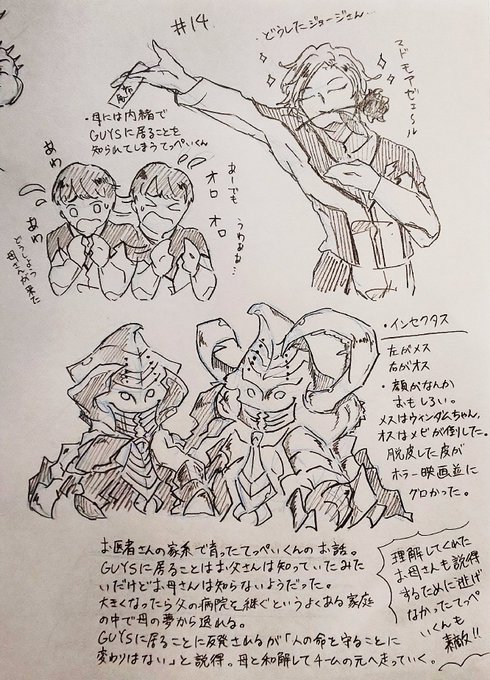 #14
どうしたジョージさん…
マドモアゼェ〜ル
・母には内緒で
GUYSに居ることを
知られてしまうてっぺいくん
あわ
あわ
どうしよう
母さんが来た
あーでも
オロ
オロ
うわぁぁ…
・インセクタス
左がメス
右がオス
・顔がなんか
おもしろい。
メスはウィンダムちゃん、
オスはメビが倒した。
脱皮した皮が
ホラー映画並に
グロかった。
お医者さんの家系で育ったてっぺいくんのお話。
GUYSに居ることはお父さんは知っていたみた
いだけどお母さんは知らないようだった。
大きくなったら父の病院を継ぐというよくある家庭
の中で母の夢から逃れる。
GUYSに居ることに反発されるが「人の命を守ることに
変わりはない」と説得。母と和解してチームの元へ走っていく。
理解してくれた
お母さんも説得
するために逃げ
なかったてっぺ
いくんも
素敵!!